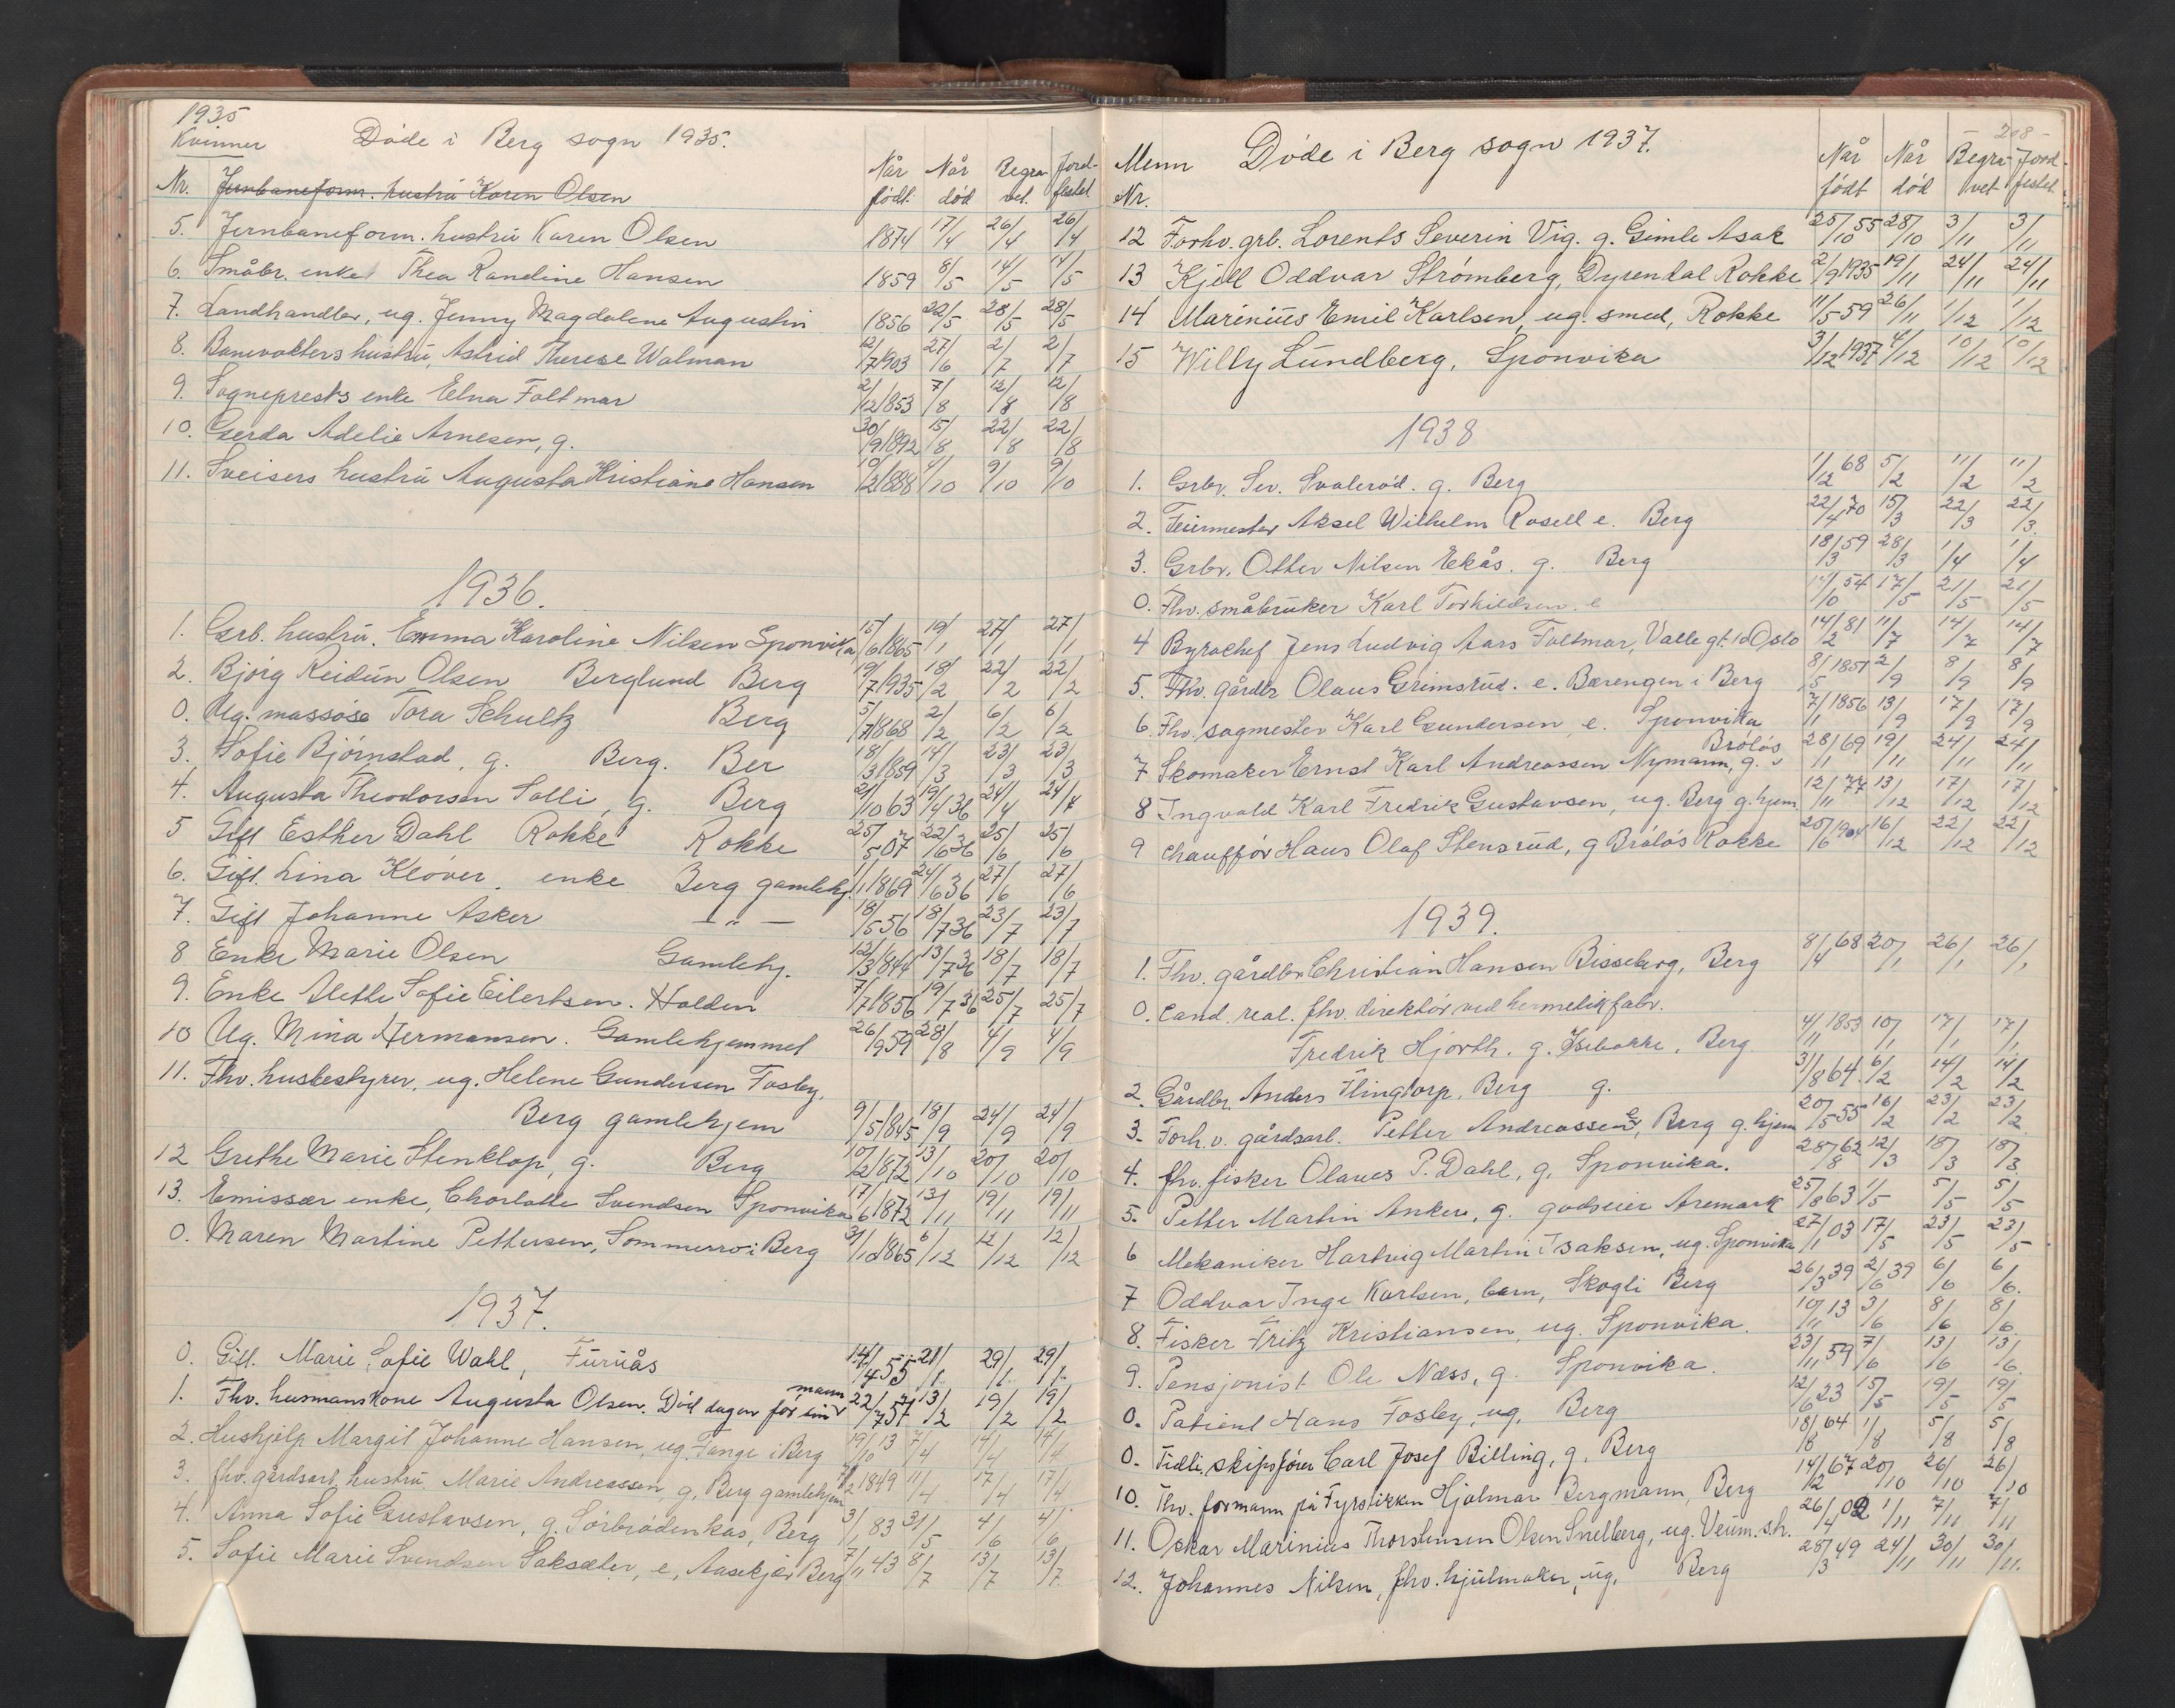 1935
Kvinner Døde i Berg sogn 1935.
Nr. Når født. Når død Begravet. Jordfestet.
Jernbaneform. hustru Karen Olsen
5. Jernbaneform. hustru Karen Olsen 1874 17/4 26/4 26/4
6. Småbr. enke Thea Randine Hansen 1859 8/5 14/5 14/5
7. Landhandler, ug. Jenny Magdalene Augustin 1856 22/5 28/5 28/5
8. Banevokters hustru, Astrid Therese Walman 12/7 1903 27/6 2/7 2/7
9. Sogneprests enke Elna Foltmar 2/12 1853 7/8 12/8 12/8
10. Gerda Adelie Arnesen, g. 30/9 1892 15/8 22/8 22/8
11. Sveisers hustru Augusta Kristiane Hansen 10/2 1888 4/10 9/10 9/10
1936.
1. Grb. hustru. Emma Karoline Nilsen Sponvika 15/6 1865 19/1 27/1 27/1
2. Bjørg Reidun Olsen Berglund Berg 19/7 1935 18/2 22/2 22/2
0. Ug. massøse Tora Schultz Berg 5/7 1868 2/2 6/2 6/2
3. Sofie Bjørnstad, g. Berg. Ber 18/3 1859 14/3 23/3 23/3
4. Augusta Theodorsen Solli, g. Berg 21/10 63 19/4 36 24/4 24/4
5 Gift Esther Dahl Rokke Rokke 25/5 07 22/6 36 25/6 25/6
6. Gift. Lina Kløver. enke Berg gamlehj. 1/1 1869 24/6 36 27/6 27/6
7. Gift Johanne Asker — " — 18/5 56 18/7 36 23/7 23/7
8 Enke Marie Olsen Gamlehj. 12/3 1844 13/7 36 18/7 18/7
9. Enke Alette Sofie Eilertsen. Halden 7/7 1856 19/7 36 25/7 25/7
10 Ug. Mina Hermansen. Gamlehjemmet 26/9 59 28/8 4/9 4/9
11. Fhv. husbestyrer, ug. Helene Gundersen Fosby,
Berg gamlehjem 9/5 1845 18/9 24/9 24/9
12 Grethe Marie Stenklop, g. Berg 10/12 1872 13/10 20/10 20/10
13. Emissær enke, Charlotte Svendsen Sponvika 17/6 1872 13/11 19/11 19/11
0. Maren Martine Pettersen, Sommerro i Berg 31/10 1865 6/12 12/12 12/12
1937.
0. Gift. Marie Sofie Wahl, Furuås 14/4 55 21/1 29/1 29/1
1. Fhv. husmanskone Augusta Olsen. Død dagen før sin mann 22/7 57 13/2 19/2 19/2
2. Hushjelp Margit Johanne Hansen, ug. Tange i Berg 19/10 13 7/4 14/4 14/4
3. fhv. gårdsarb. hustru Marie Andreassen, g, Berg gamlehjem 1849 11/4 17/4 17/4
4. Anna Sofie Gustavsen, g. Sørbrødenkas, Berg 3/1 83 31/5 4/6 4/6
5. Sofie Marie Svendsen Saksæter, e, Aasekjær Berg 7/11 43 8/7 13/7 13/7
218
Menn Døde i Berg sogn 1937.
Nr. Når født Når død Begravet Jordfestet.
12 Forhv. grb. Lorents Severin Vig. g. Gimle Asak 25/10 55 28/10 3/11 3/11
13 Kjell Oddvar Strømberg, Dyrendal Rokke 2/9 1935 19/11 24/11 24/11
14 Marinius Emil Karlsen, ug. smed, Rokke 11/5 59 26/11 1/12 1/12
15 Willy Lundberg, Sponvika 3/12 1937 4/12 10/12 10/12
1938
1. Grbr. Sev. Svalerød. g. Berg 11/12 68 5/2 11/2 11/2
2. Feiermester Aksel Wilhelm Rosell e. Berg 22/4 70 15/3 22/3 22/3
3. Grbr. Otter Nilsen Ekås. g. Berg 18/3 59 28/3 1/4 1/4
0. Fhv. småbruker Karl Torkildsen. e 14/10 54 17/5 21/5 21/5
4 Byråchef Jens Ludvig Aars Foltmar, Valle gt. 1d Oslo 14/2 81 11/7 14/7 14/7
5. Fhv. gårdbr Olaus Grimsrud. e. Bærengen i Berg 8/5 1851 2/9 8/9 8/9
6. Fhv. sagmester Karl Gundersen, e. Sponvika 7/1 1856 13/9 17/9 17/9
7 Skomaker Ernst Karl Andreassen Nymann, g. Bråløs 28/1 69 19/11 24/11 24/11
8 Ingvald Karl Fredrik Gustavsen, ug. Berg g. hjem 12/11 77 13/12 17/12 17/12
9 chauffør Hans Olaf Stensrud, g Bråløs Rokke 20/6 1904 16/12 22/12 22/12
1939.
1. Fhv. gårdbr Christian Hansen Bisseberg, Berg 8/4 68 20/1 26/1 26/1
0. Cand. real. fhv. direktør ved hermetikfabr.
Fredrik Hjorth. g. Isebakke, Berg 4/11 1853 10/1 17/1 17/1
2. Gårdbr Anders Flingtorp, Berg g. 31/8 64 6/2 14/2 14/2
3. Forh. v. gårdsarb. Petter Andreassen, e, Berg g. hjem 20/5 55 16/2 23/2 23/2
4. fhv. fisker Olaves P. Dahl, g, Sponvika. 28/8 62 12/3 18/3 18/3
5. Petter Martin Anker, g. godseier Aremark 25/8 63 1/5 5/5 5/5
6 Mekaniker Hartvig Martin Isaksen, ug. Sponvika 27/1 03 17/5 23/5 23/5
7 Oddvar Inge Karlsen, barn, Skogli Berg 26/3 39 2/6 39 6/6 6/6
8. Fisker Fritz Kristiansen, ug. Sponvika. 10/11 13 3/6 8/6 8/6
9. Pensjonist Ole Næss, g. Sponvika. 23/11 59 7/6 13/6 13/6
0. Patient Hans Fosby, ug. Berg 12/6 23 15/5 19/5 19/5
0. Tidli. skipsfører Carl Josef Billing, g. Berg 18/8 64 1/8 5/8 5/8
10. Fhv. formann på Fyrstikken Hjalmar Bergmann, Berg 14/12 67 20/10 26/10 26/10
11. Oskar Marinius Thorstensen Olsen Snelberg, ug. Veum s.h. 26/4 02 1/11 7/11 7/11
12. Johannes Nilsen, fhv. hjulmaker, ug. Berg 28/3 49 24/11 30/11 30/11.